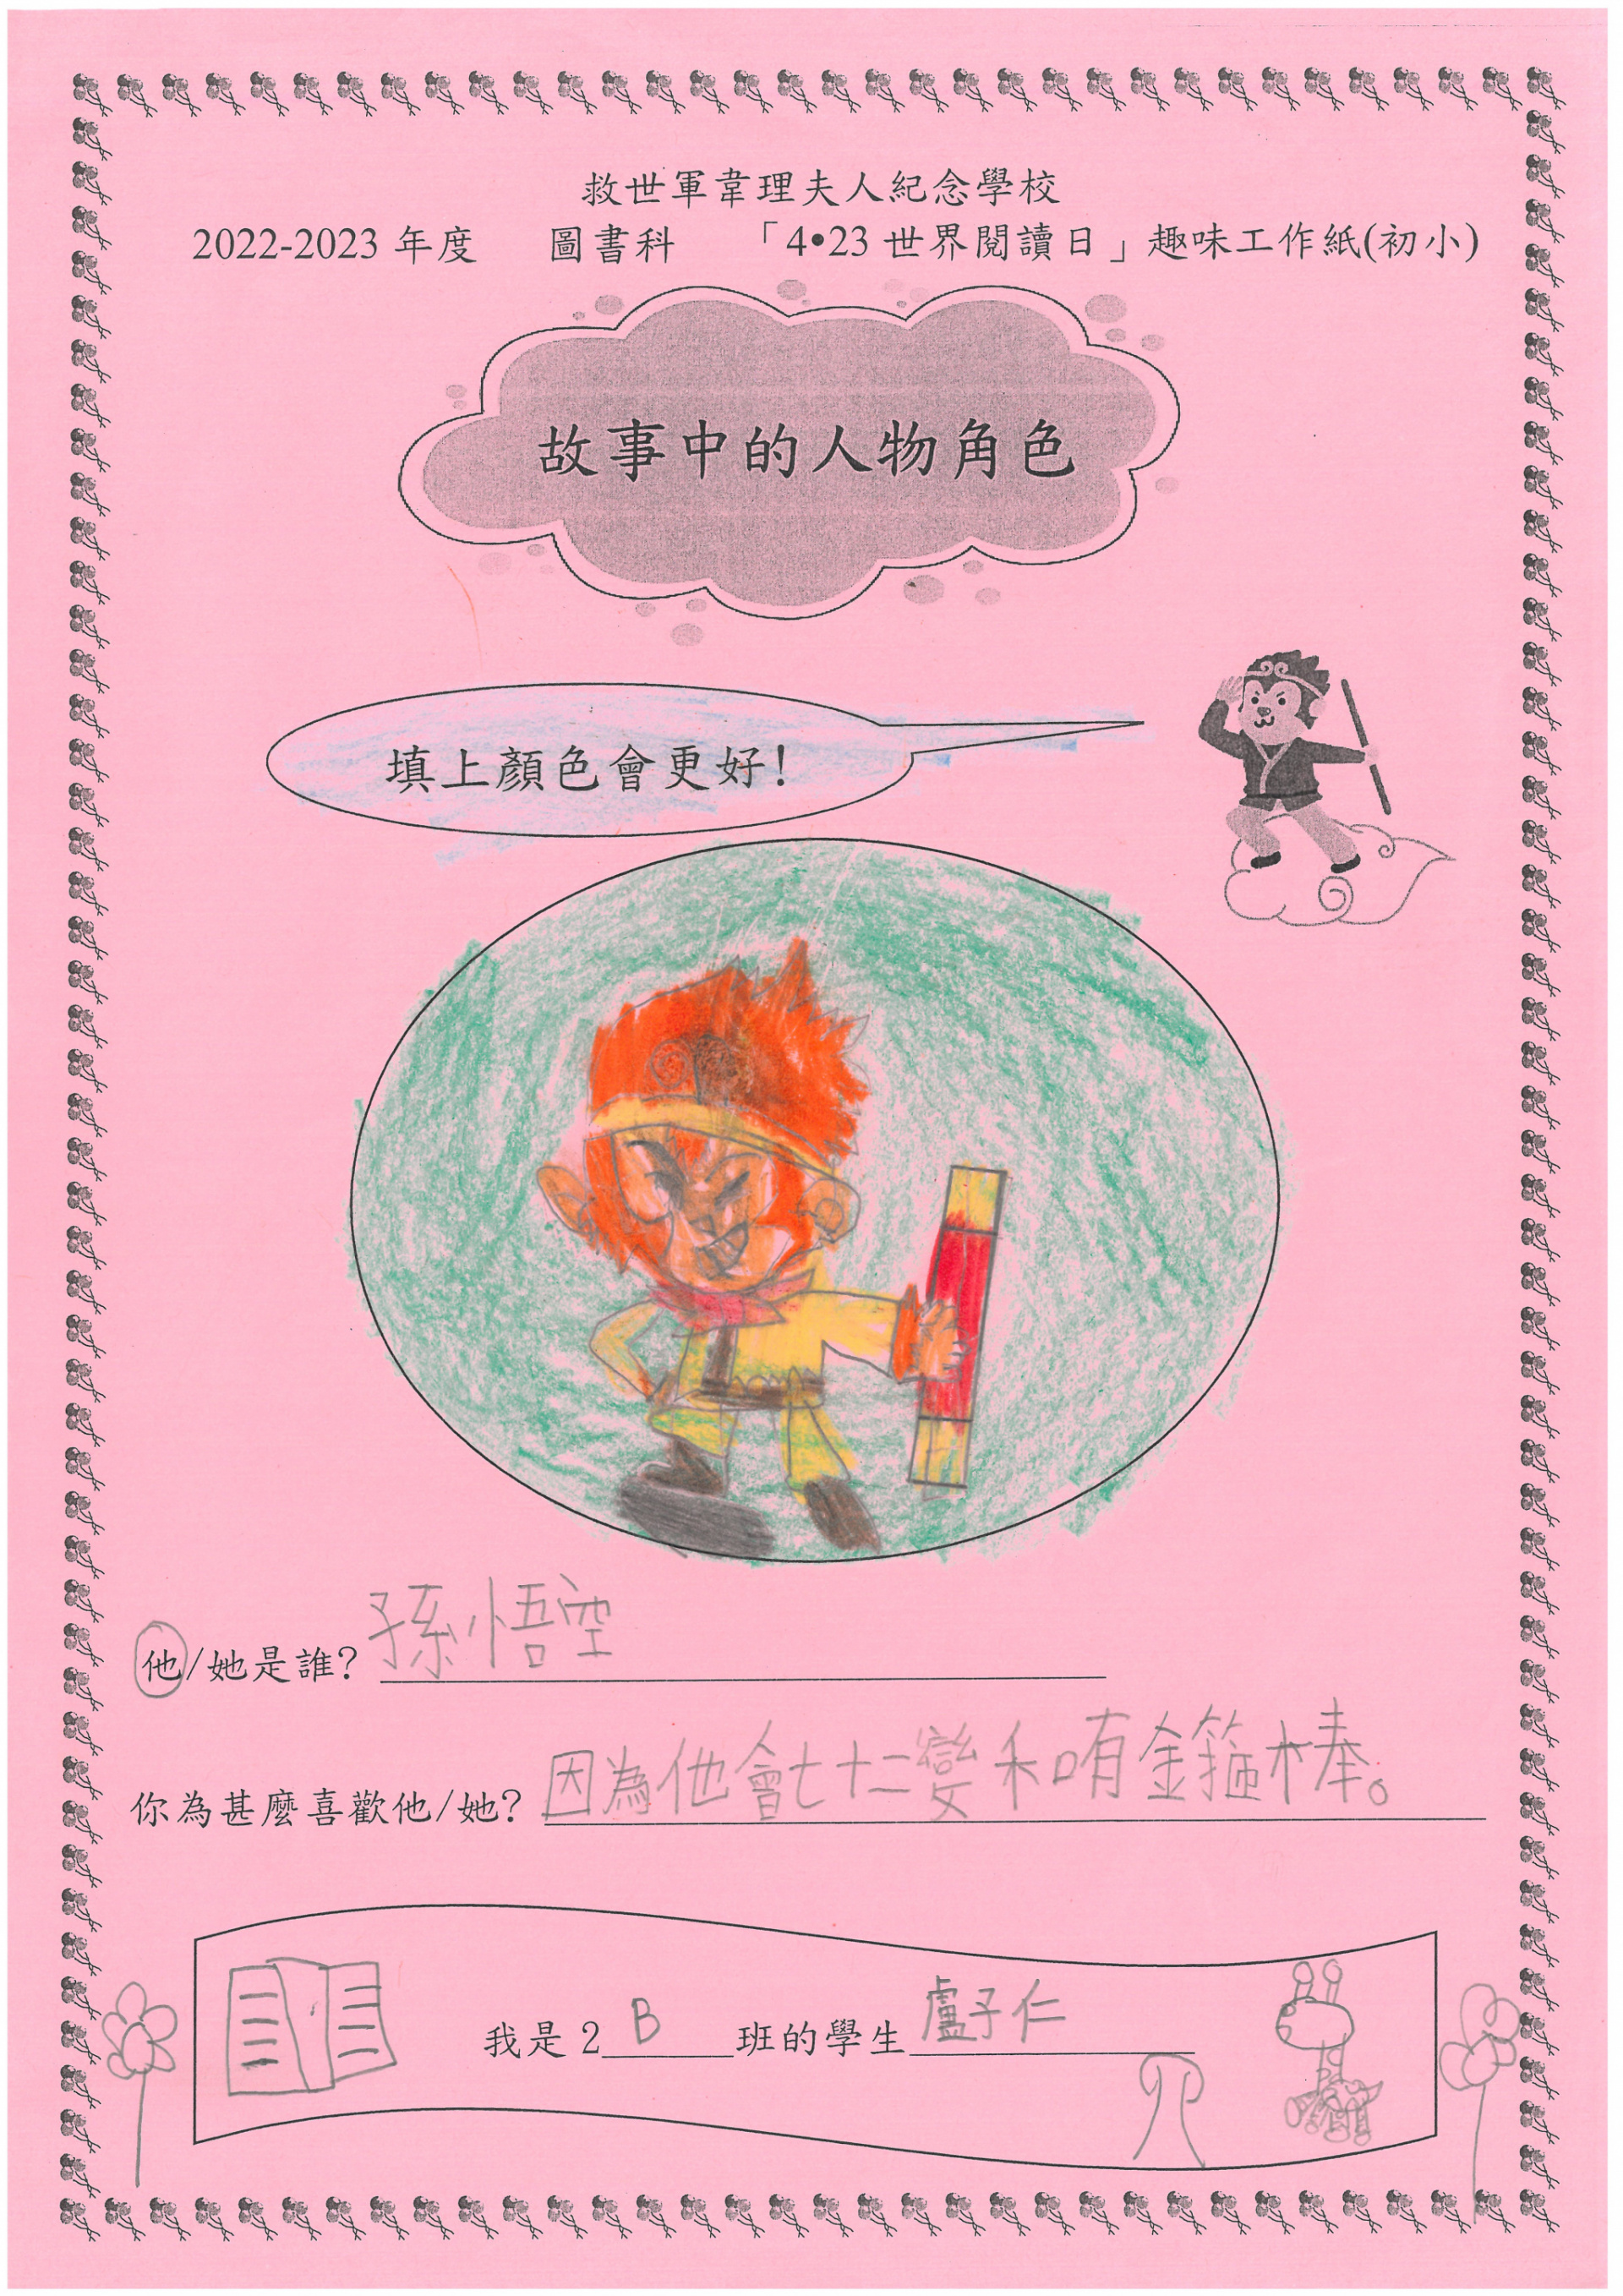 救世軍韋理夫人紀念學校
2022-2023 年度 圖書科 「4•23 世界閱讀日」趣味工作紙(初小)
故事中的人物角色
填上顏色會更好!
他/她是誰? 孫悟空
你為甚麼喜歡他/她? 因為他會七十二變和唷金箍棒。
我是 2 B 班的學生 盧子仁